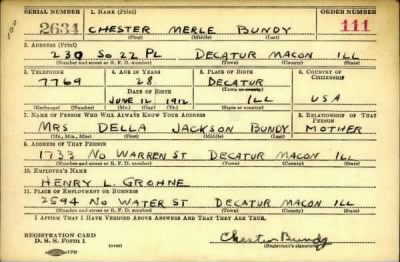 SERIAL NUMBER 1. NAME (Print) ORDER NUMBER
2634 CHESTER MERLE BUNDY 111
(First) (Middle) (Last)
2. ADDRESS (Print)
230 SO 22 PL DECATUR MACON ILL
(Number and street or R. F. D. number) (Town) (County) (State)
3. TELEPHONE 4. AGE IN YEARS 5. PLACE OF BIRTH 6. COUNTRY OF CITIZENSHIP
7769 28 DECATUR
DATE OF BIRTH (Town or county)
JUNE 12, 1912 ILL USA
(Exchange) (Number) (Mo.) (Day) (Yr.) (State or country)
7. NAME OF PERSON WHO WILL ALWAYS KNOW YOUR ADDRESS 8. RELATIONSHIP OF THAT PERSON
MRS DELLA JACKSON BUNDY MOTHER
(Mr., Mrs., Miss) (First) (Middle) (Last)
9. ADDRESS OF THAT PERSON
1733 NO WARREN ST DECATUR MACON ILL
(Number and street or R. F. D. number) (Town) (County) (State)
10. EMPLOYER'S NAME
HENRY L. GROHNE
11. PLACE OF EMPLOYMENT OR BUSINESS
2594 NO WATER ST DECATUR MACON ILL
(Number and street or R. F. D. number) (Town) (County) (State)
I AFFIRM THAT I HAVE VERIFIED ABOVE ANSWERS AND THAT THEY ARE TRUE.
REGISTRATION CARD
D. S. S. Form 1 (over) Chester Bundy
(Registrant's signature)